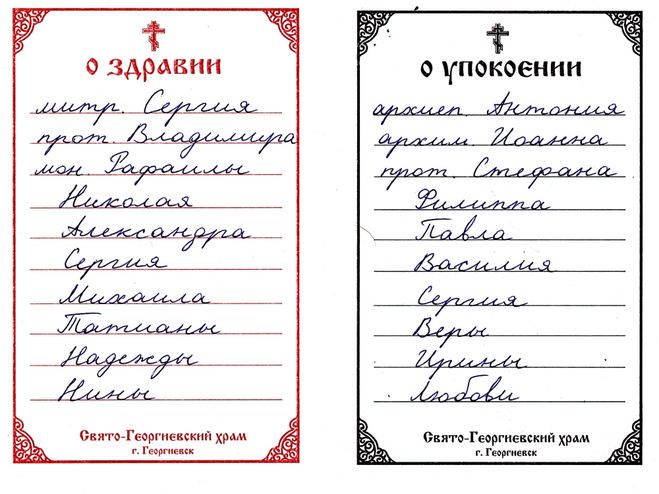 О ЗДРАВИИ
митр. Сергия
прот. Владимира
мон. Рафаилы
Николая
Александра
Сергия
Михаила
Татианы
Надежды
Нины
Свято-Георгиевский храм
г. Георгиевск
О УПОКОЕНИИ
архиеп. Антония
архим. Иоанна
прот. Стефана
Филиппа
Павла
Василия
Сергия
Веры
Ирины
Любови
Свято-Георгиевский храм
г. Георгиевск